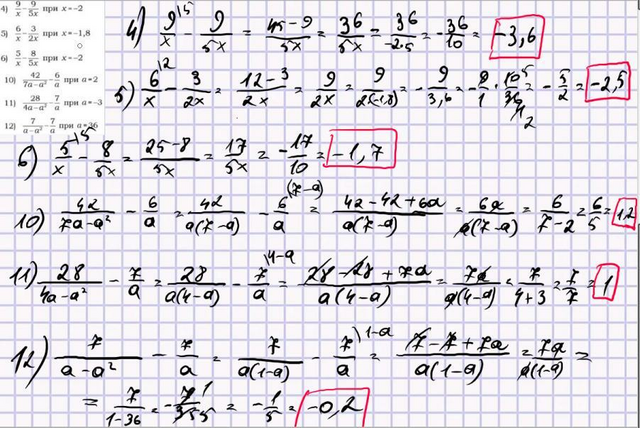 4) 9/x - 9/5x при x=-2
5) 6/x - 3/2x при x=-1,8
6) 5/x - 8/5x при x=-2
10) 42/7a-a² - 6/a при a=2
11) 28/4a-a² - 7/a при a=-3
12) 7/a-a² - 7/a при a=36
4) 9\5/x - 9/5x = 45-9/5x = 36/5x = 36/-2·5 = -36/10 = -3,6
5) 6\2/x - 3/2x = 12-3/2x = 9/2x = 9/2(-1,8) = -9/3,6 = -9/1 · 10/36 = -5/2 = -2,5
6) 5\5/x - 8/5x = 25-8/5x = 17/5x = -17/10 = -1,7
10) 42/7a-a² - 6/a = 42/a(7-a) - 6\(7-a)/a = 42-42+6a/a(7-a) = 6a/a(7-a) = 6/7-2 = 6/5 = 1,2
11) 28/4a-a² - 7/a = 28/a(4-a) - 7\4-a/a = 28-28+7a/a(4-a) = 7a/a(4-a) = 7/4+3 = 7/7 = 1
12) 7/a-a² - 7/a = 7/a(1-a) - 7\1-a/a = 7-7+7a/a(1-a) = 7a/a(1-a) =
= 7/1-36 = -7/35 = -1/5 = -0,2